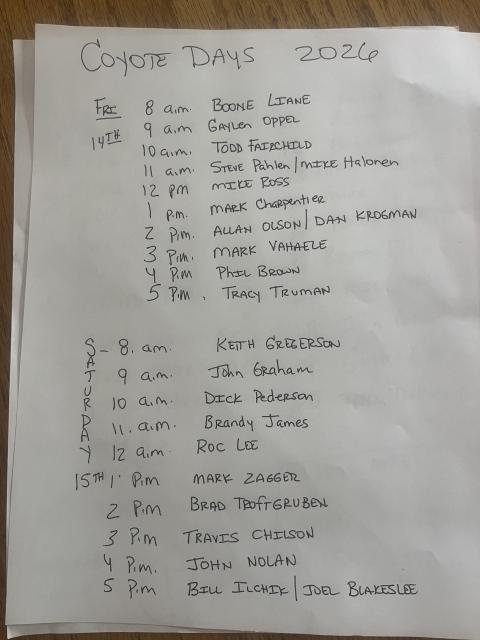 COYOTE DAYS 2026
FRI 8 a.m. BOONE LIANE
14TH 9 a.m GAYLEN OPPEL
10 a.m. TODD FAIRCHILD
11 a.m. STEVE Pahlen/MIKE Halonen
12 pm MIKE ROSS
1 p.m. MARK Charpentier
2 P.m. ALLAN OLSON/DAN KROGMAN
3 P.m. MARK VAHAELE
4 P.m PHIL BROWN
5 P.m. TRACY TRUMAN
SATURDAY - 8. am. KEITH GREGERSON
9 a.m. John GRAHam
10 a.m. DICK PEDERSON
11. a.m. Brandy James
12 a.m. ROC LEE
15TH 1 P.m MARK ZAGGER
2 P.m BRAD TROFTGRUBEN
3 P.m TRAVIS CHILSON
4 P.m. JOHN NOLAN
5 P.m BILL ILCHIK/JOEL BLAKESLEE